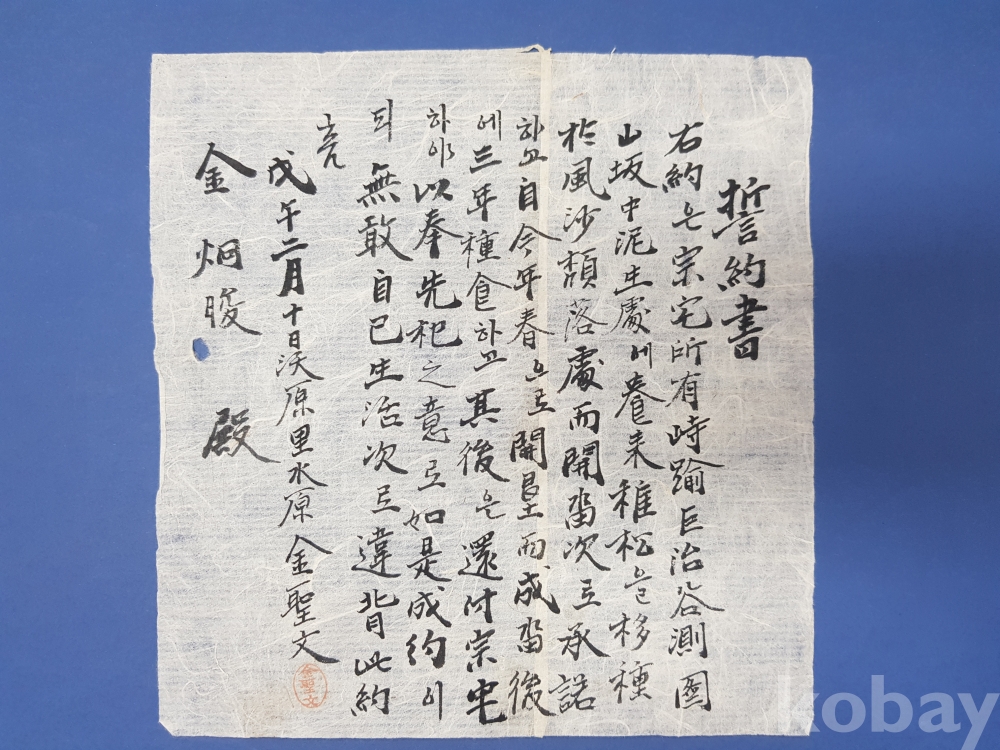 誓約書
右約은宗宅所有時踰巨治谷測圖
山坂中泥生處에養来稚松을移種
於風沙頹落處而開畓次로承諾
하고自今年春으로開墾而成畓後
에三年種食하고其後은還付宗宅
하야以奉先祀之意로如是成約이
되無敢自己生活次로違背此約
喜
戊午二月十日沃原里水原金聖文
金聖文
金炯駿 殿
kobay